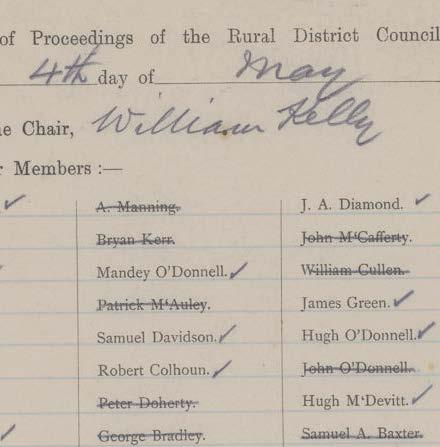 of Proceedings of the Rural District Council
4th day of May
e Chair, William Kelly
r Members :—
A. Manning. J. A. Diamond.
Bryan Kerr. John M'Cafferty.
Mandey O'Donnell. William Cullen.
Patrick M'Auley. James Green.
Samuel Davidson. Hugh O'Donnell.
Robert Colhoun. John O'Donnell.
Peter Doherty. Hugh M'Devitt.
George Bradley. Samuel A. Baxter.